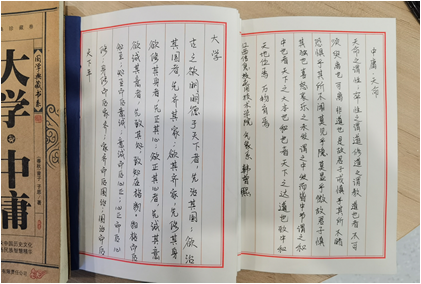 中庸·天命
天命之谓性 率性之谓道 修道之谓教 道也者不可
须臾离也可离非道也是故君子戒慎乎其所不睹
恐惧乎其所不闻莫见乎隐莫显乎微故君子慎
其独也喜怒哀乐之未发谓之中发而皆中节谓之和
中也者天下之大本也和也者天下之达道也致中和
天地位焉 万物育焉
江西信息应用职业技术学院 气象系 韩
大学
古之欲明明德于天下者，先治其国；欲治
其国者，先齐其家；欲齐其家，先修其身
欲修其身者，先正其心；欲正其心者，先诚其意
欲诚其意者，先致其知，致知在格物。物格而后
知至，知至而后意诚，意诚而后心正，心正而后
身修，身修而后家齐，家齐而后国治，国治而后
天下平。
国学典藏书系
大学
中庸